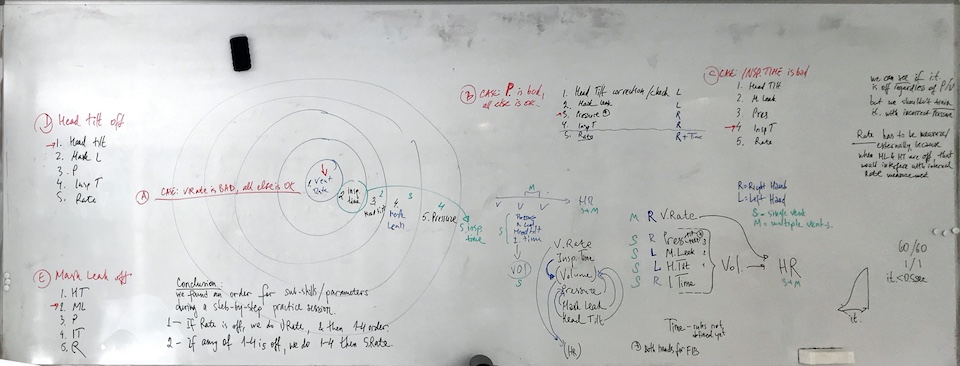 D Head tilt off
1. Head tilt
2. Mask L
3. P
4. Insp T
5. Rate
A CASE: V.Rate is BAD, all else is OK
1. Vent Rate
2. Insp.
3. Head tilt
4. Mask Leak
5. Pressure
2
3
4
5. Insp. time
E Mask Leak off
1. HT
2. ML
3. P
4. IT
5. R
Conclusion:
we found an order for sub-skills/parameters
during a step-by-step practice session.
1 - If Rate is off, we do VRate, & then 1-4 order.
2 - If any of 1-4 is off, we do 1-4 then 5.Rate.
B CASE: P. is bad,
all else is ok.
1. Head Tilt correction/check L
2. Mask leak L
3. Pressure R
4. Insp T R
5. Rate R + Time
C CASE: INSP.TIME is bad
1. Head Tilt
2. M Leak
3. Pres
4. Insp T
5. Rate
we can see if i.t.
is off regardless of P/V
but we shouldn't
it. with incorrect Pressure
Rate has to be measured
externally, because
when ML & HT are off, that
would interfere with internal
Rate measurement.
R = Right Hand
L = Left Hand
S - single vent
M = multiple vents.
M
V V V
HR
S+M
Press
M Leak
Head tilt
I. time
S
VOL
S
V.Rate
Insp.Time
(Volume)
Pressure
Mask Leak
Head Tilt
(HR)
M R V.Rate
S R Pres
S L M.Leak
S L H.Tilt
S R I Time
Vol.
HR
S+M
Time - rules not
defined yet
Both hands for FiB
60/60
1/1
it. < 0.5sec
it.